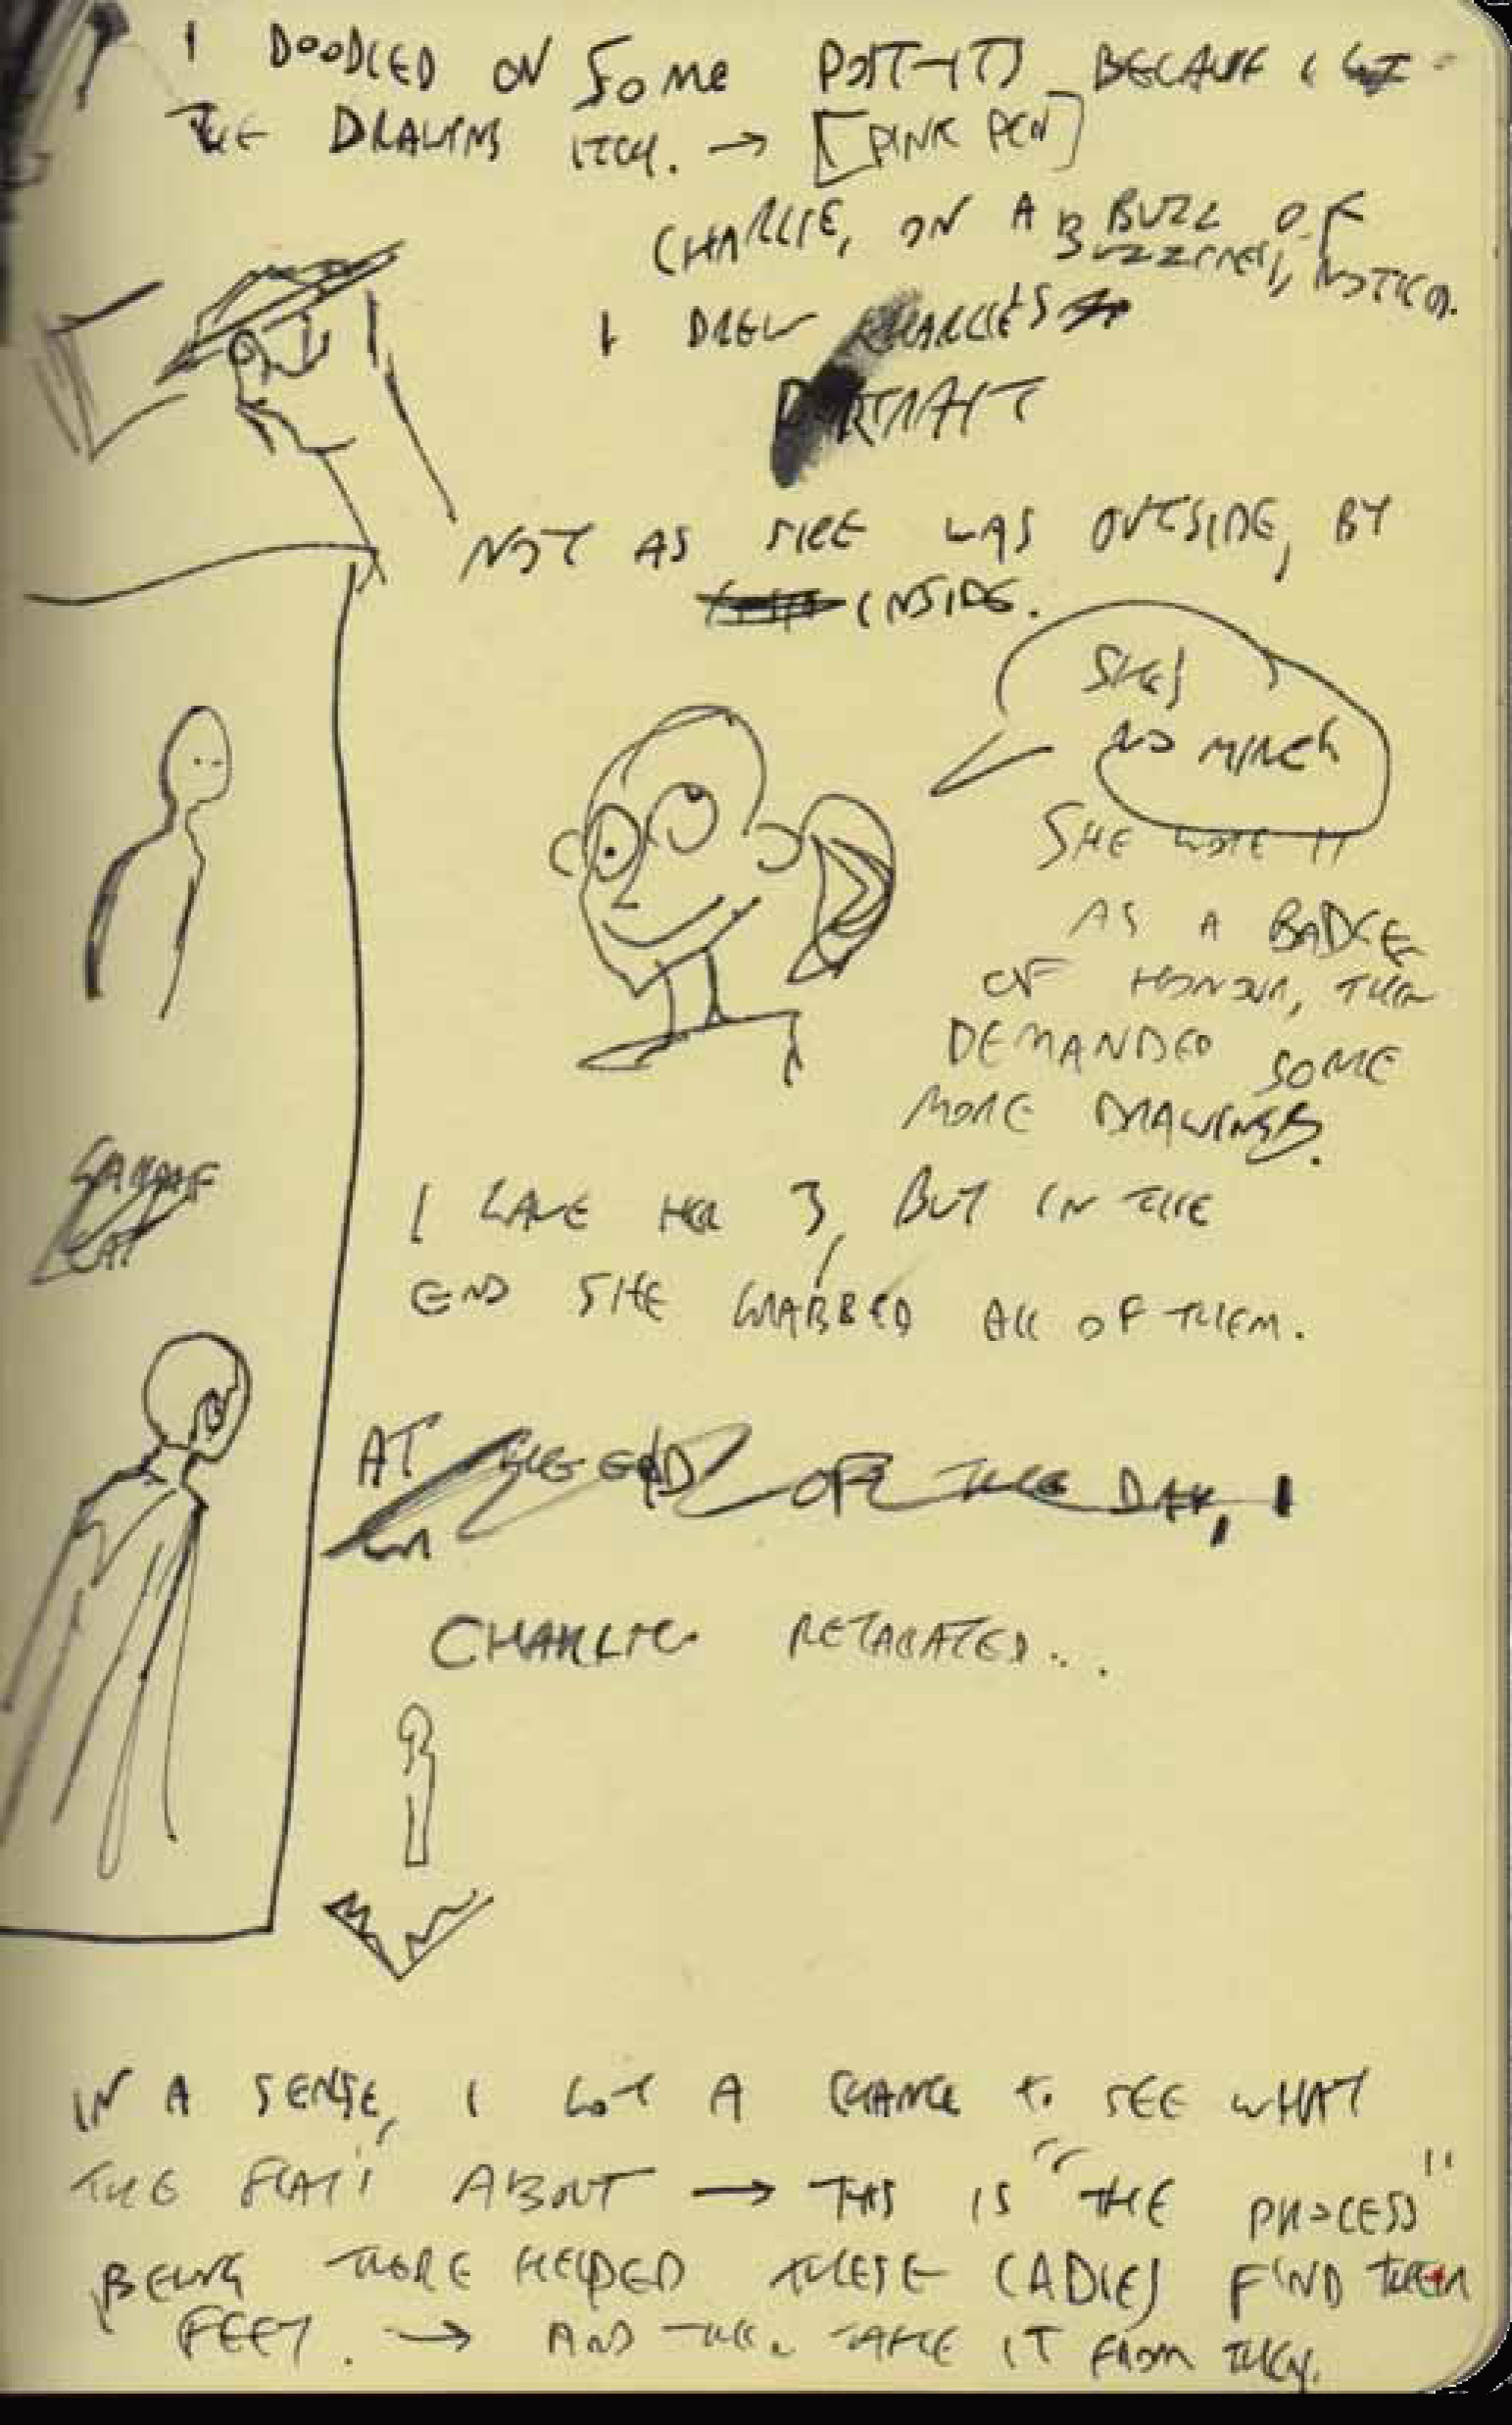 I DOODLED ON SOME POST-ITS BECAUSE I GOT
THE DRAWING ITCH. → [PINK PEN]
CHARLIE, ON A BUZZ OF
BUZZINESS, NOTICED.
I DREW CHARLIE'S
PORTRAIT
NOT AS SHE WAS OUTSIDE, BY
INSIDE.
SHES
NO MINCH
SHE WORE IT
AS A BADGE
OF HONOUR, THEN
DEMANDED SOME
MORE DRAWINGS.
I GAVE HER 3, BUT IN THE
END SHE GRABBED ALL OF THEM.
AT THE END OF THE DAY, I
CHARLIE RETALIATED...
IN A SENSE, I GOT A CHANCE TO SEE WHAT
THE FLAT'S ABOUT → THIS IS "THE PROCESS"
BEING THERE HELPED THESE LADIES FIND THEIR
FEET. → AND THEN TAKE IT FROM THEM.